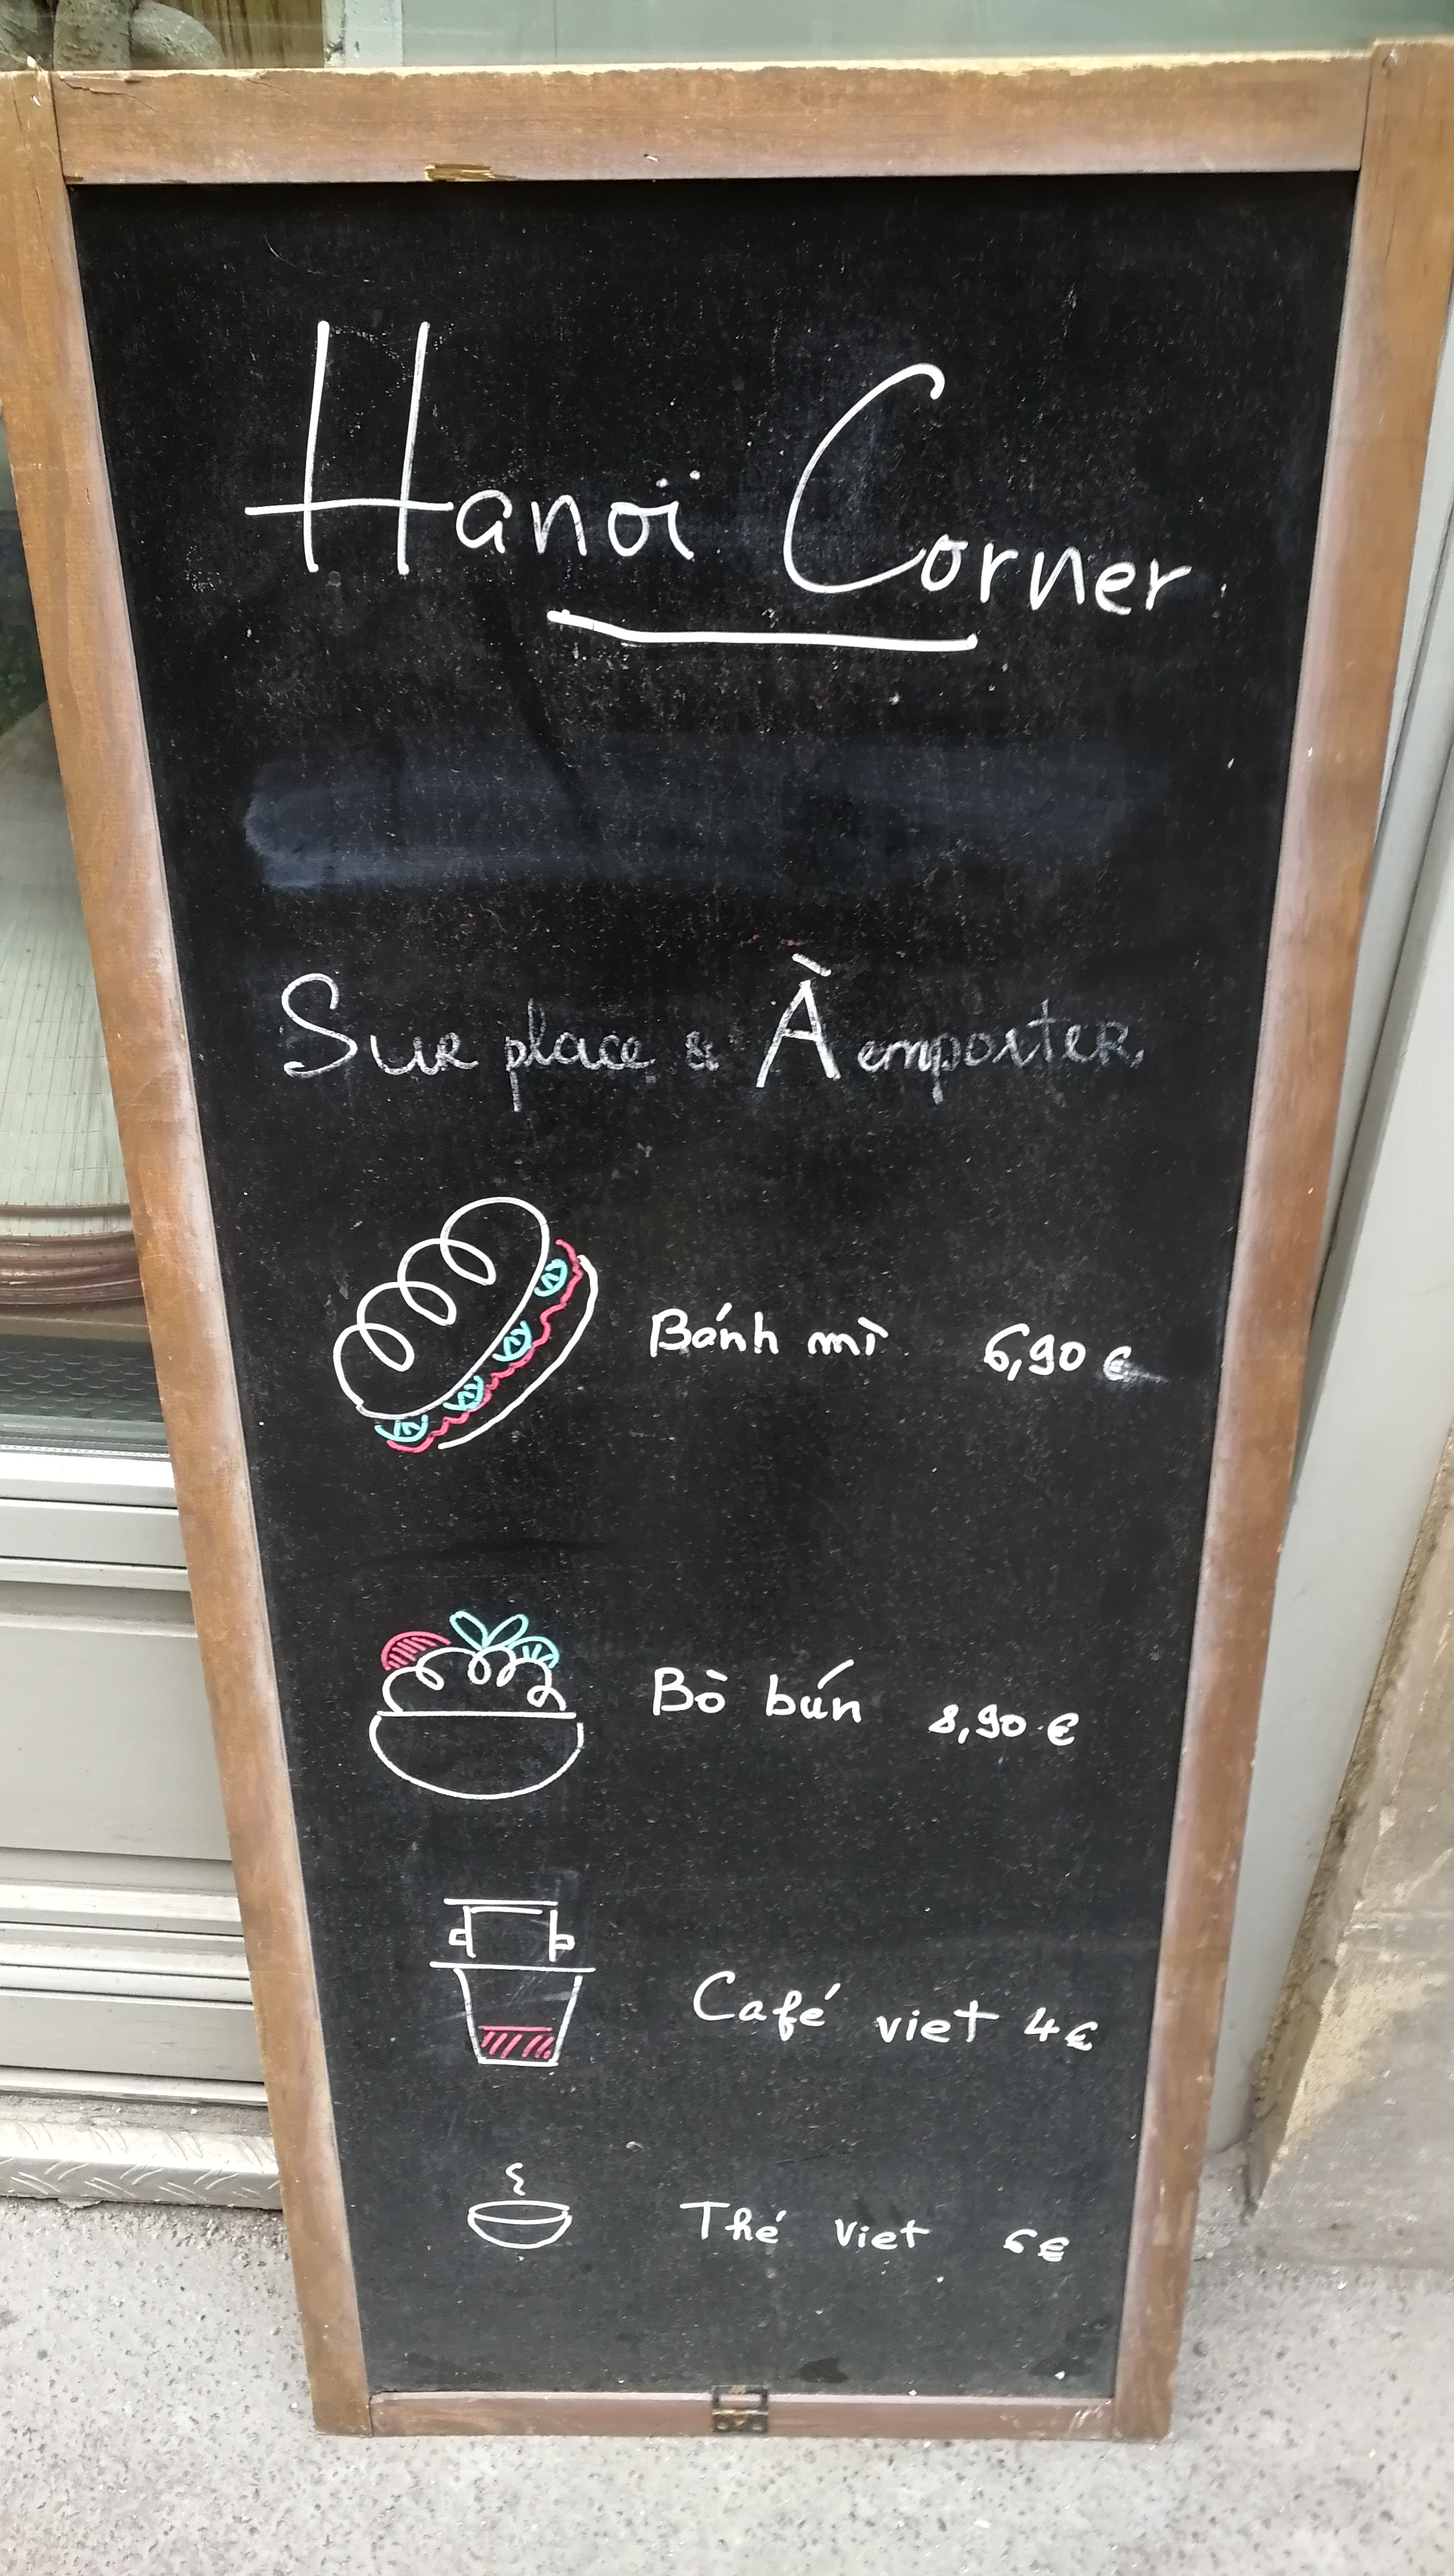 Hanoï Corner
Sur place & À emporter
Bánh mì 6,90 €
Bò bún 8,90 €
Café viet 4€
Thé viet 6€